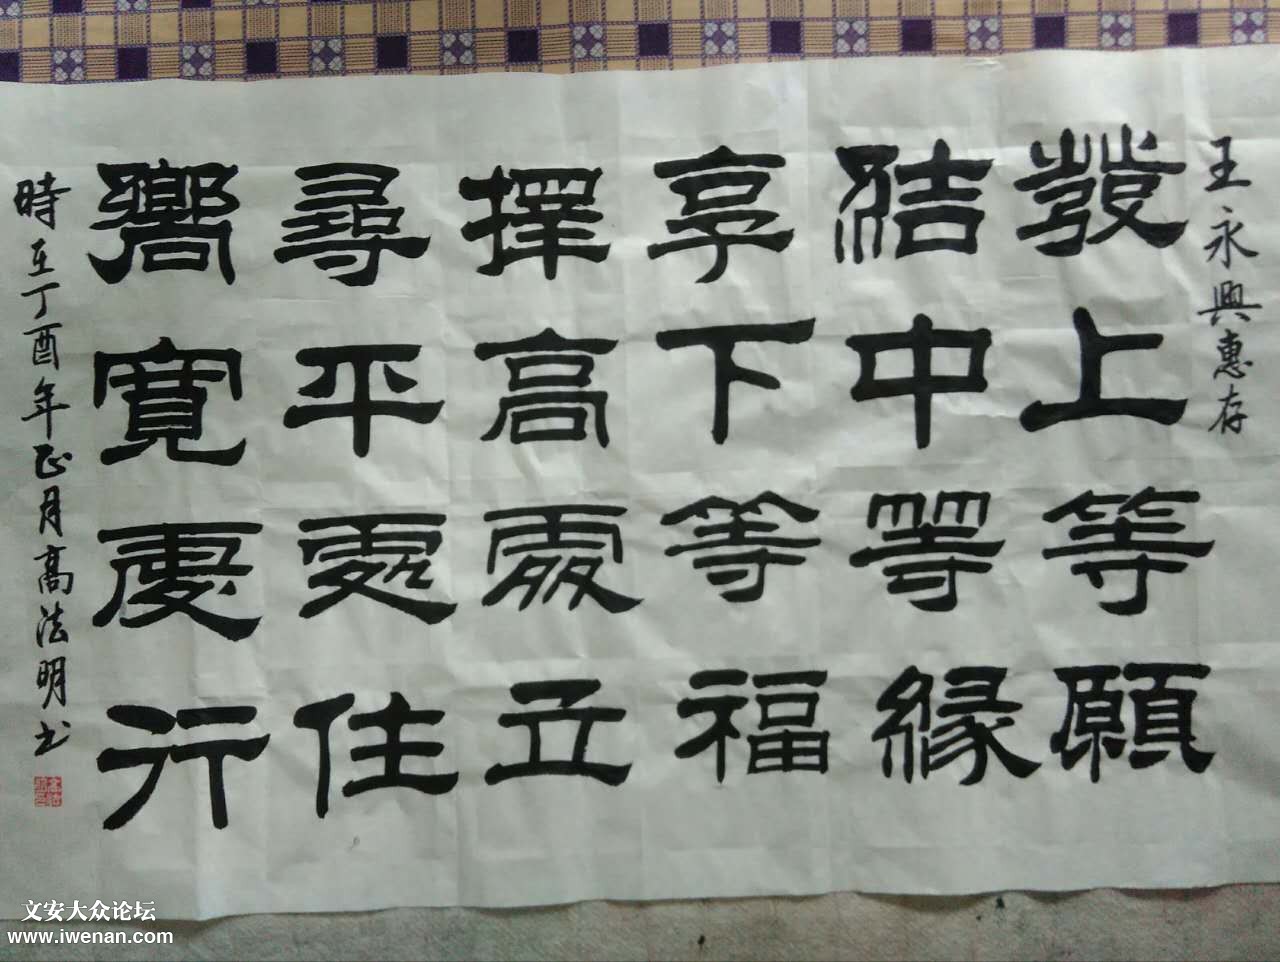 王永興惠存
發上等願
結中等緣
享下等福
擇高處立
尋平處住
嚮寬處行
時在丁酉年正月高法明书
文安大众论坛
www.iwenan.com